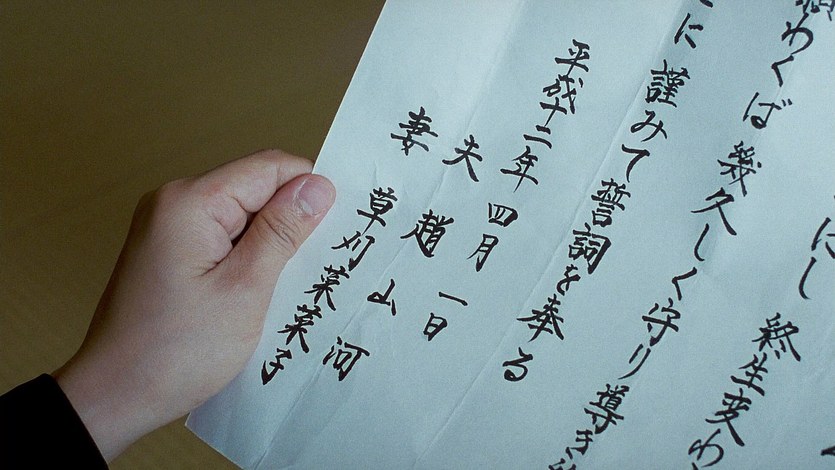 にし
終生変わ
願わくば幾久しく守り導き
に謹みて誓詞を奉る
平成十二年四月一日
夫 趙山河
妻 草刈菜菜子